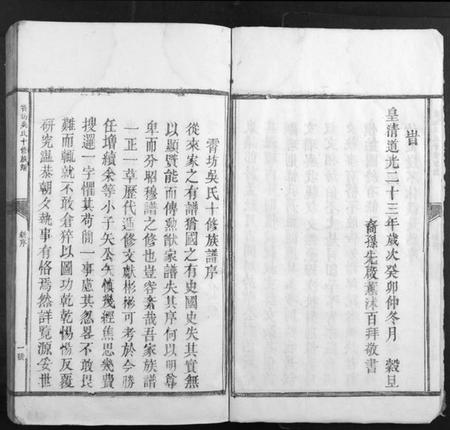 旹
皇清道光二十三年歲次癸卯仲冬月 穀旦
裔孫先殿薰沐百拜敬書
霄坊吳氏十修族譜序
從來家之有譜猶國之有史國史失其實無
以顯賢能而傳勲猷家譜失其序何以明尊
卑而分昭穆譜之修也豈容紊哉吾家族譜
一正一草歷代遞修文獻彬彬可考於今勝
任增續矣等小子矢公矢慎幾經焦思幾費
搜邏一字懼其苟簡一事慮其忽畧不敢畏
難而輒就不敢倉猝以圖功乾乾惕惕反覆
研究温恭朝夕執事有恪焉然詳覧源委世
霄坊吳氏十修族譜
新序
一號